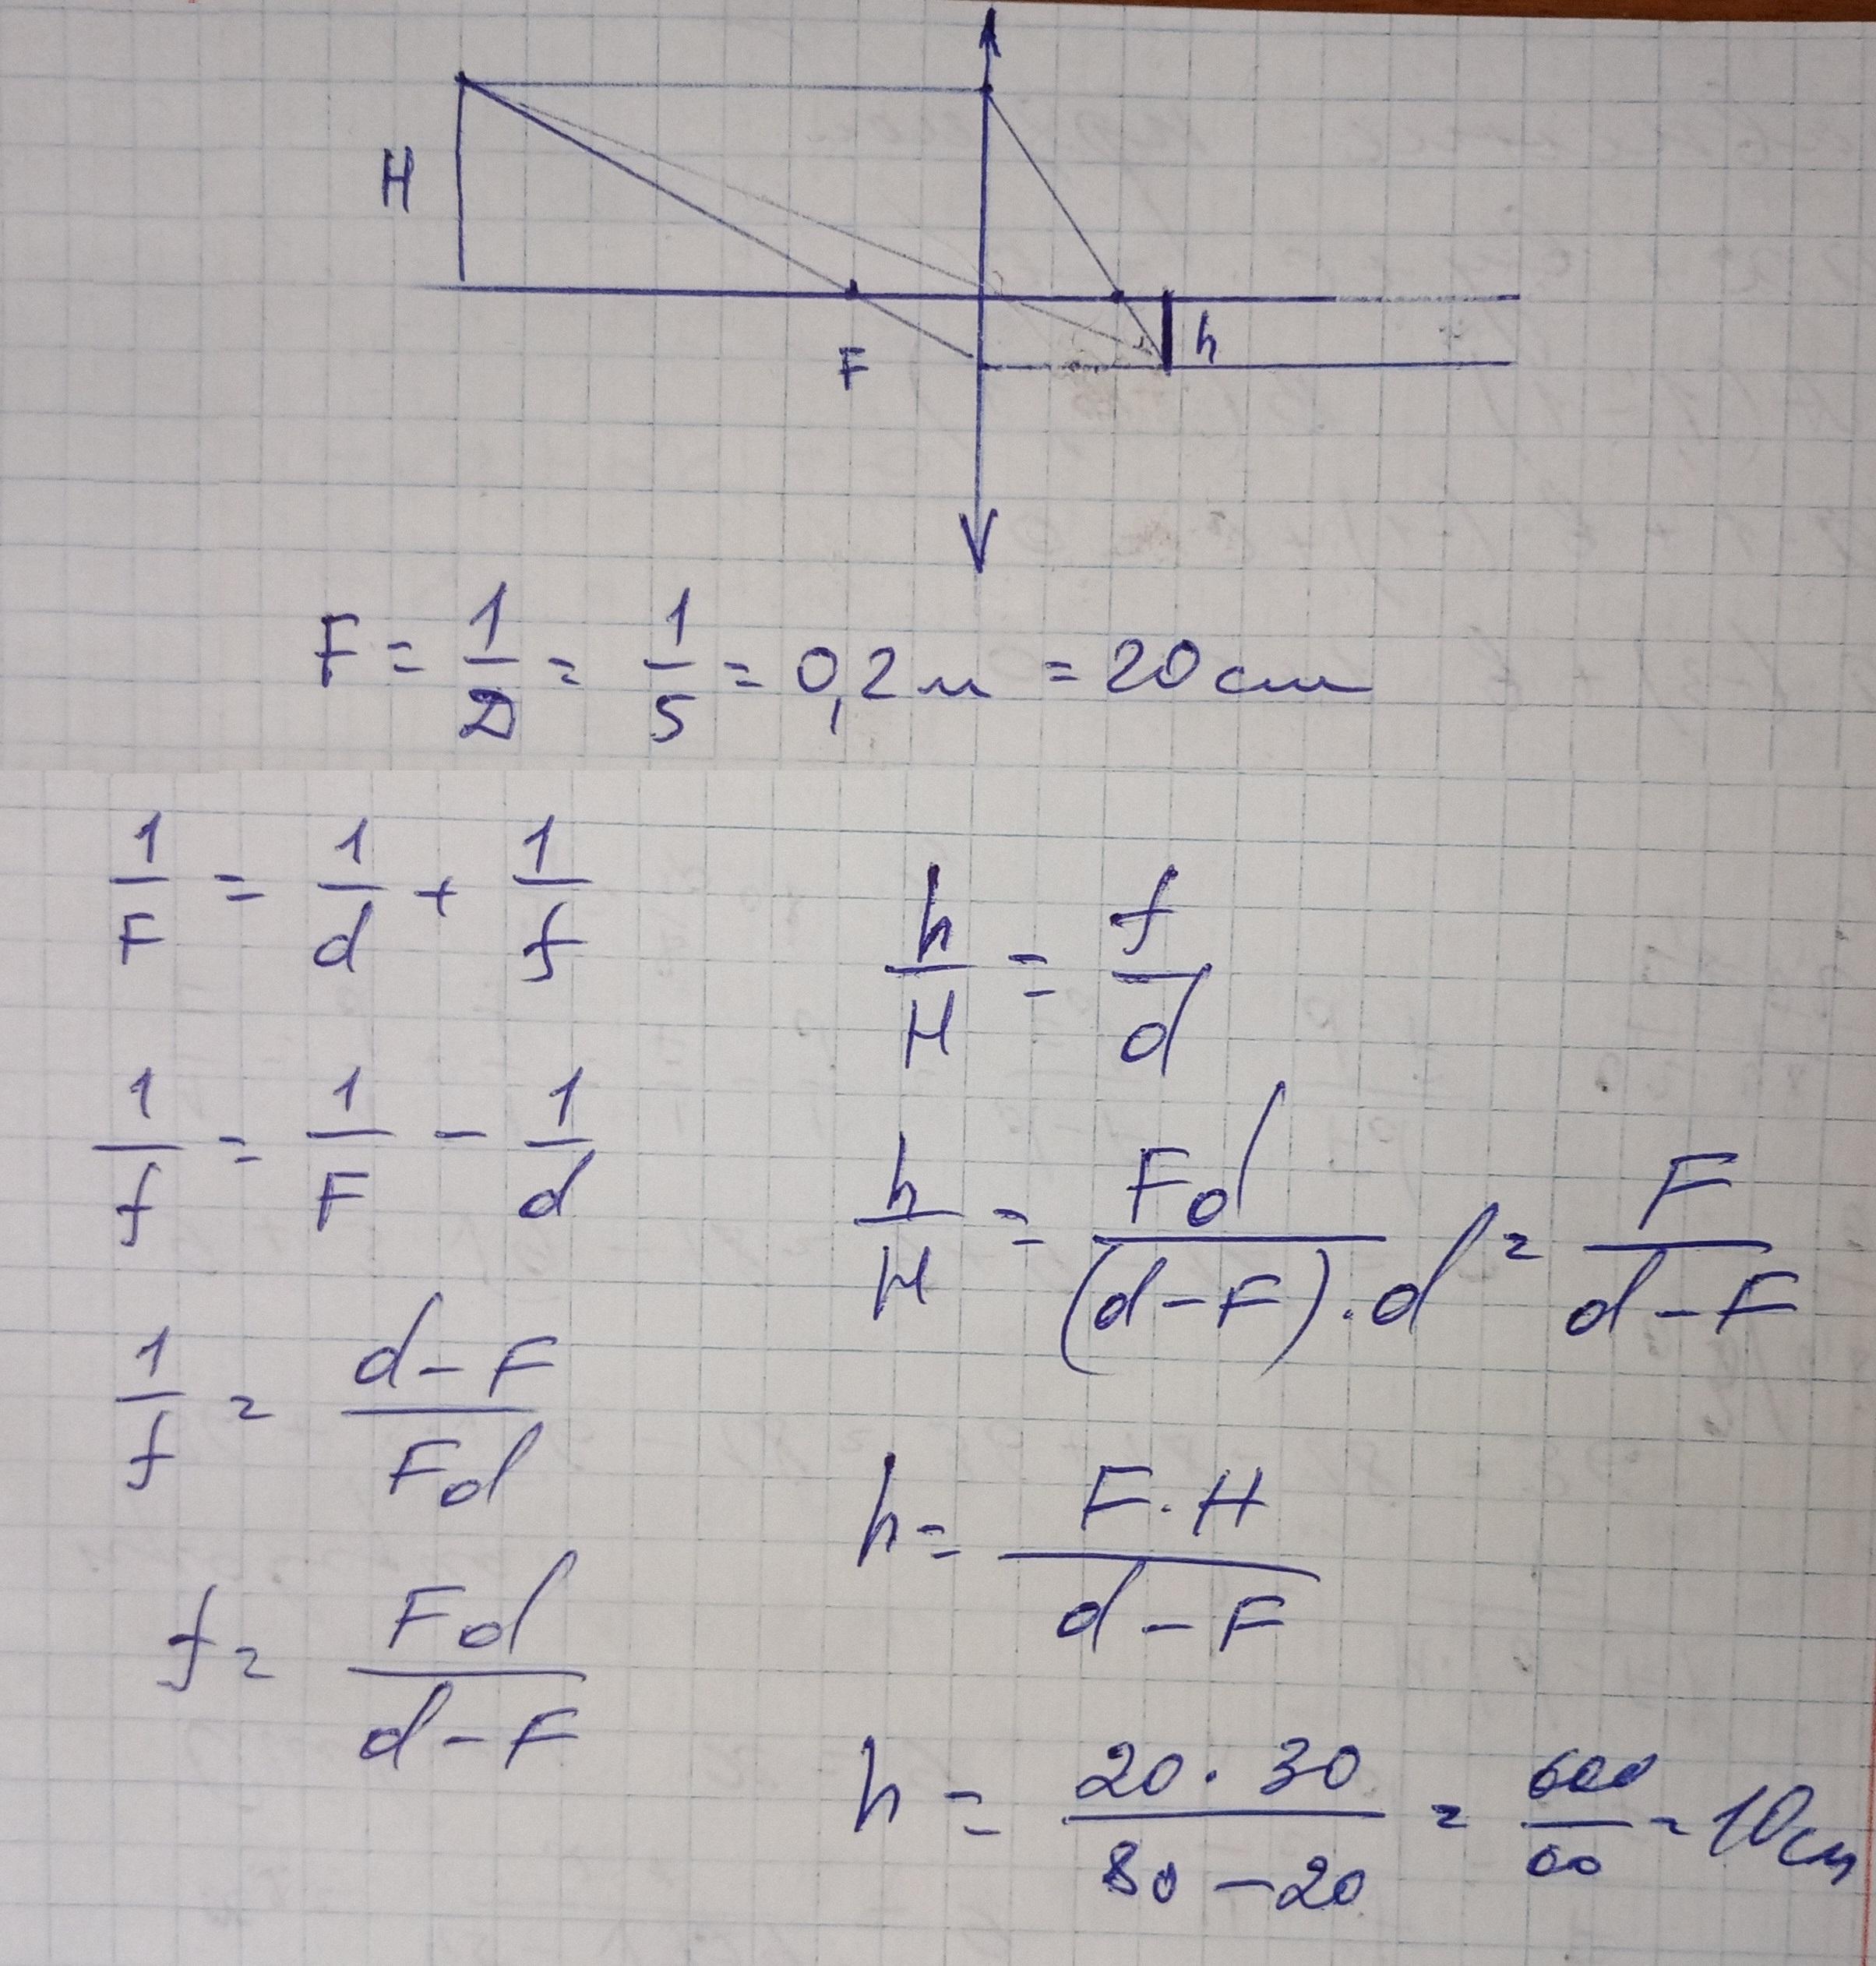 H
F
h
F = 1/D = 1/5 = 0,2 м = 20 см
1/F = 1/d + 1/f
1/f = 1/F - 1/d
1/f = (d-F)/Fd
f = Fd/(d-F)
h/H = f/d
h/H = Fd/((d-F)·d) = F/(d-F)
h = F·H/(d-F)
h = 20·30/(80-20) = 600/60 = 10 см